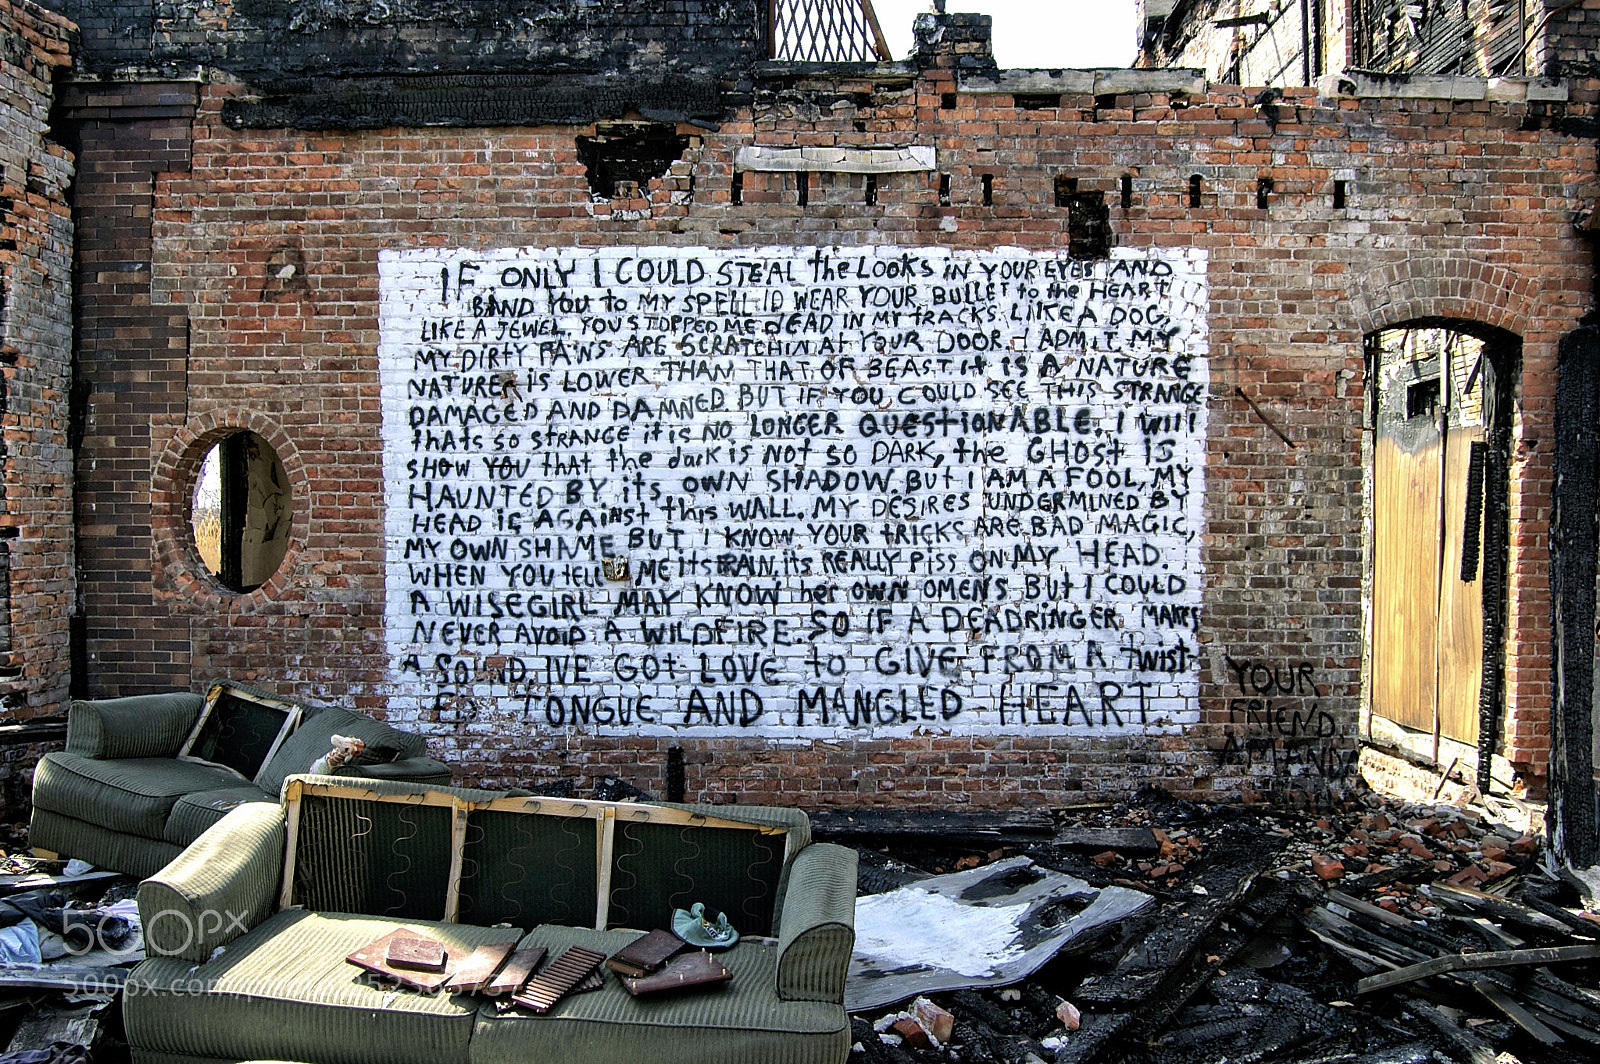 IF ONLY I COULD STEAL the LOOKS IN YOUR EYES AND
BIND YOU to MY SPELL ID WEAR YOUR BULLET to the HEART
LIKE A JEWEL. YOU STOPPED ME DEAD IN MY tRACKS. LIKE A DOG,
MY DIRTY PAWS ARE SCRATCHIN At YOUR DOOR. I ADMIt MY
NATURE IS LOWER THAN THAT OF BEAST. It IS A NATURE
DAMAGED AND DAMNED BUT IF YOU COULD SEE THIS STRANGE
thATS SO STRANGE it iS NO LONGER QUEStiONABLE. I Will
SHOW YOU that the dark iS Not SO DARK, the GHOSt IS
HAUNTED BY its OWN SHADOW. But I AM A FOOL, MY
HEAD iS AGAiNSt this WALL. MY DESIRES UNDERMINED BY
MY OWN SHAME BUT I KNOW YOUR tRICKS ARE BAD MAGIC,
WHEN YOU tELL ME ItS RAIN, itS REALLY PISS ON MY HEAD.
A WISEGIRL MAY KNOW her OWN OMENS BUt I COULD
NEVER AVOID A WILDFIRE. SO IF A DEADRINGER MAKES
A SOUND, IVE GOt LOVE to GIVE FROM A twist-
ED TONGUE AND MANGLED HEART
YOUR
FRIEND,
AMANDA
500px